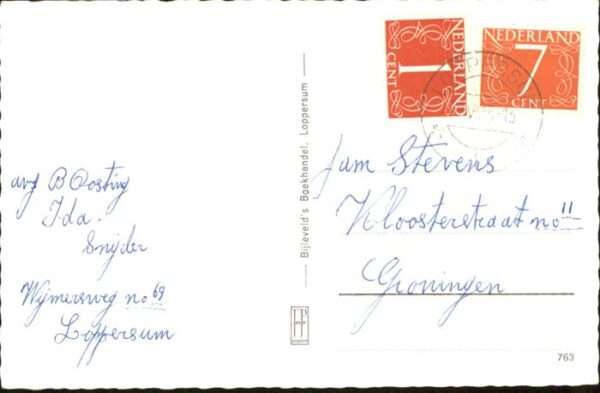 avz B Oosting
Ida.
Snijder
Wijmersweg no 69
Loppersum
Bijleveld's Boekhandel, Loppersum
1
CENT
NEDERLAND
NEDERLAND
7
CENT
fam Stevens
Kloosterstraat no 11
Groningen
763